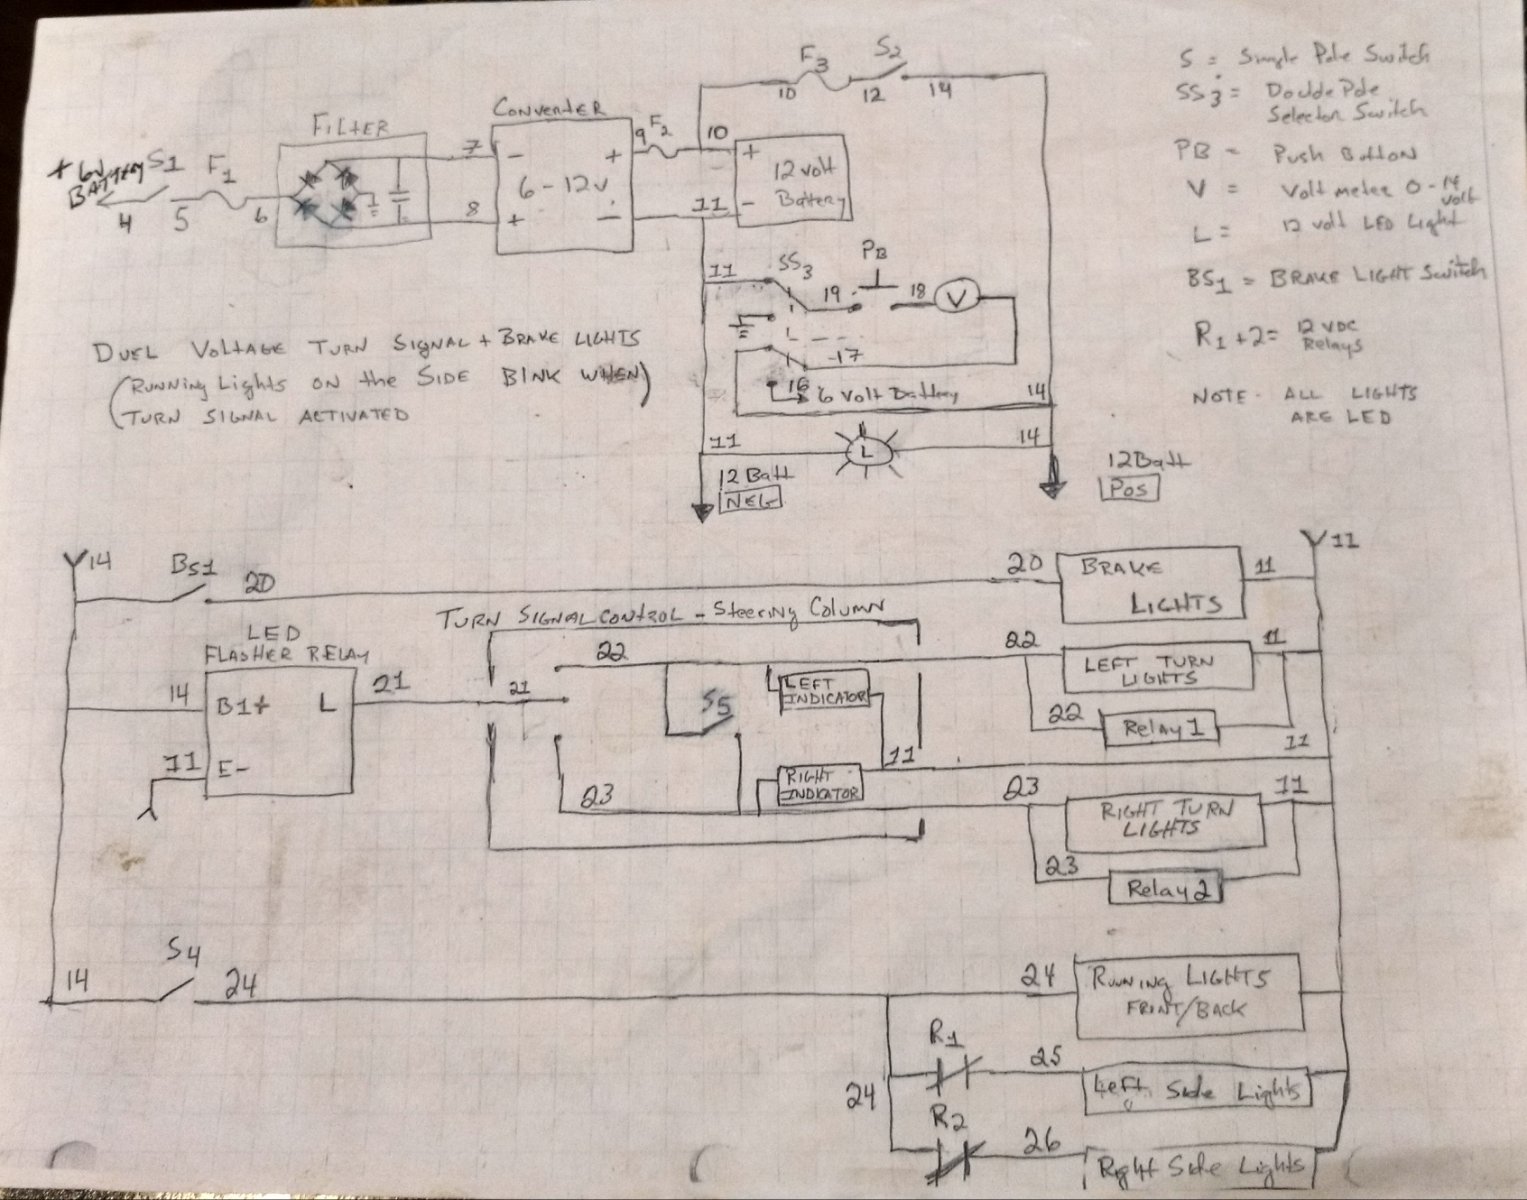 FILTER
CONVERTER
+ 6V
BATTERY
S1
F1
4
5
6
7
8
-
+
6-12V
+
-
9
F2
10
11
+
12 volt
Battery
-
10
F3
12
S2
14
11
SS3
19
PB
18
V
17
16
6 Volt Battery
14
11
L
14
12 Batt
NEG
12 Batt
Pos
S = Single Pole Switch
SS3 = Double Pole
Selector Switch
PB = Push Button
V = Volt meter 0-14
volt
L = 12 volt LED Light
BS1 = BRAKE LIGHT Switch
R1+2 = 12 VDC
Relays
NOTE - ALL LIGHTS
ARE LED
DUEL VOLTAGE TURN SIGNAL + BRAKE LIGHTS
(RUNNING Lights ON the SIDE BINK WHEN)
(TURN SIGNAL ACTIVATED
14
BS1
20
20
BRAKE
LIGHTS
11
11
TURN SIGNAL CONTROL - Steering Column
LED
FLASHER RELAY
14
B1+
L
21
11
E-
21
22
S5
LEFT
INDICATOR
11
RIGHT
INDICATOR
23
22
LEFT TURN
LIGHTS
11
22
Relay 1
11
23
RIGHT TURN
LIGHTS
11
23
Relay 2
14
S4
24
24
RUNNING LIGHTS
FRONT/BACK
24
R1
25
Left Side Lights
R2
26
Right Side Lights